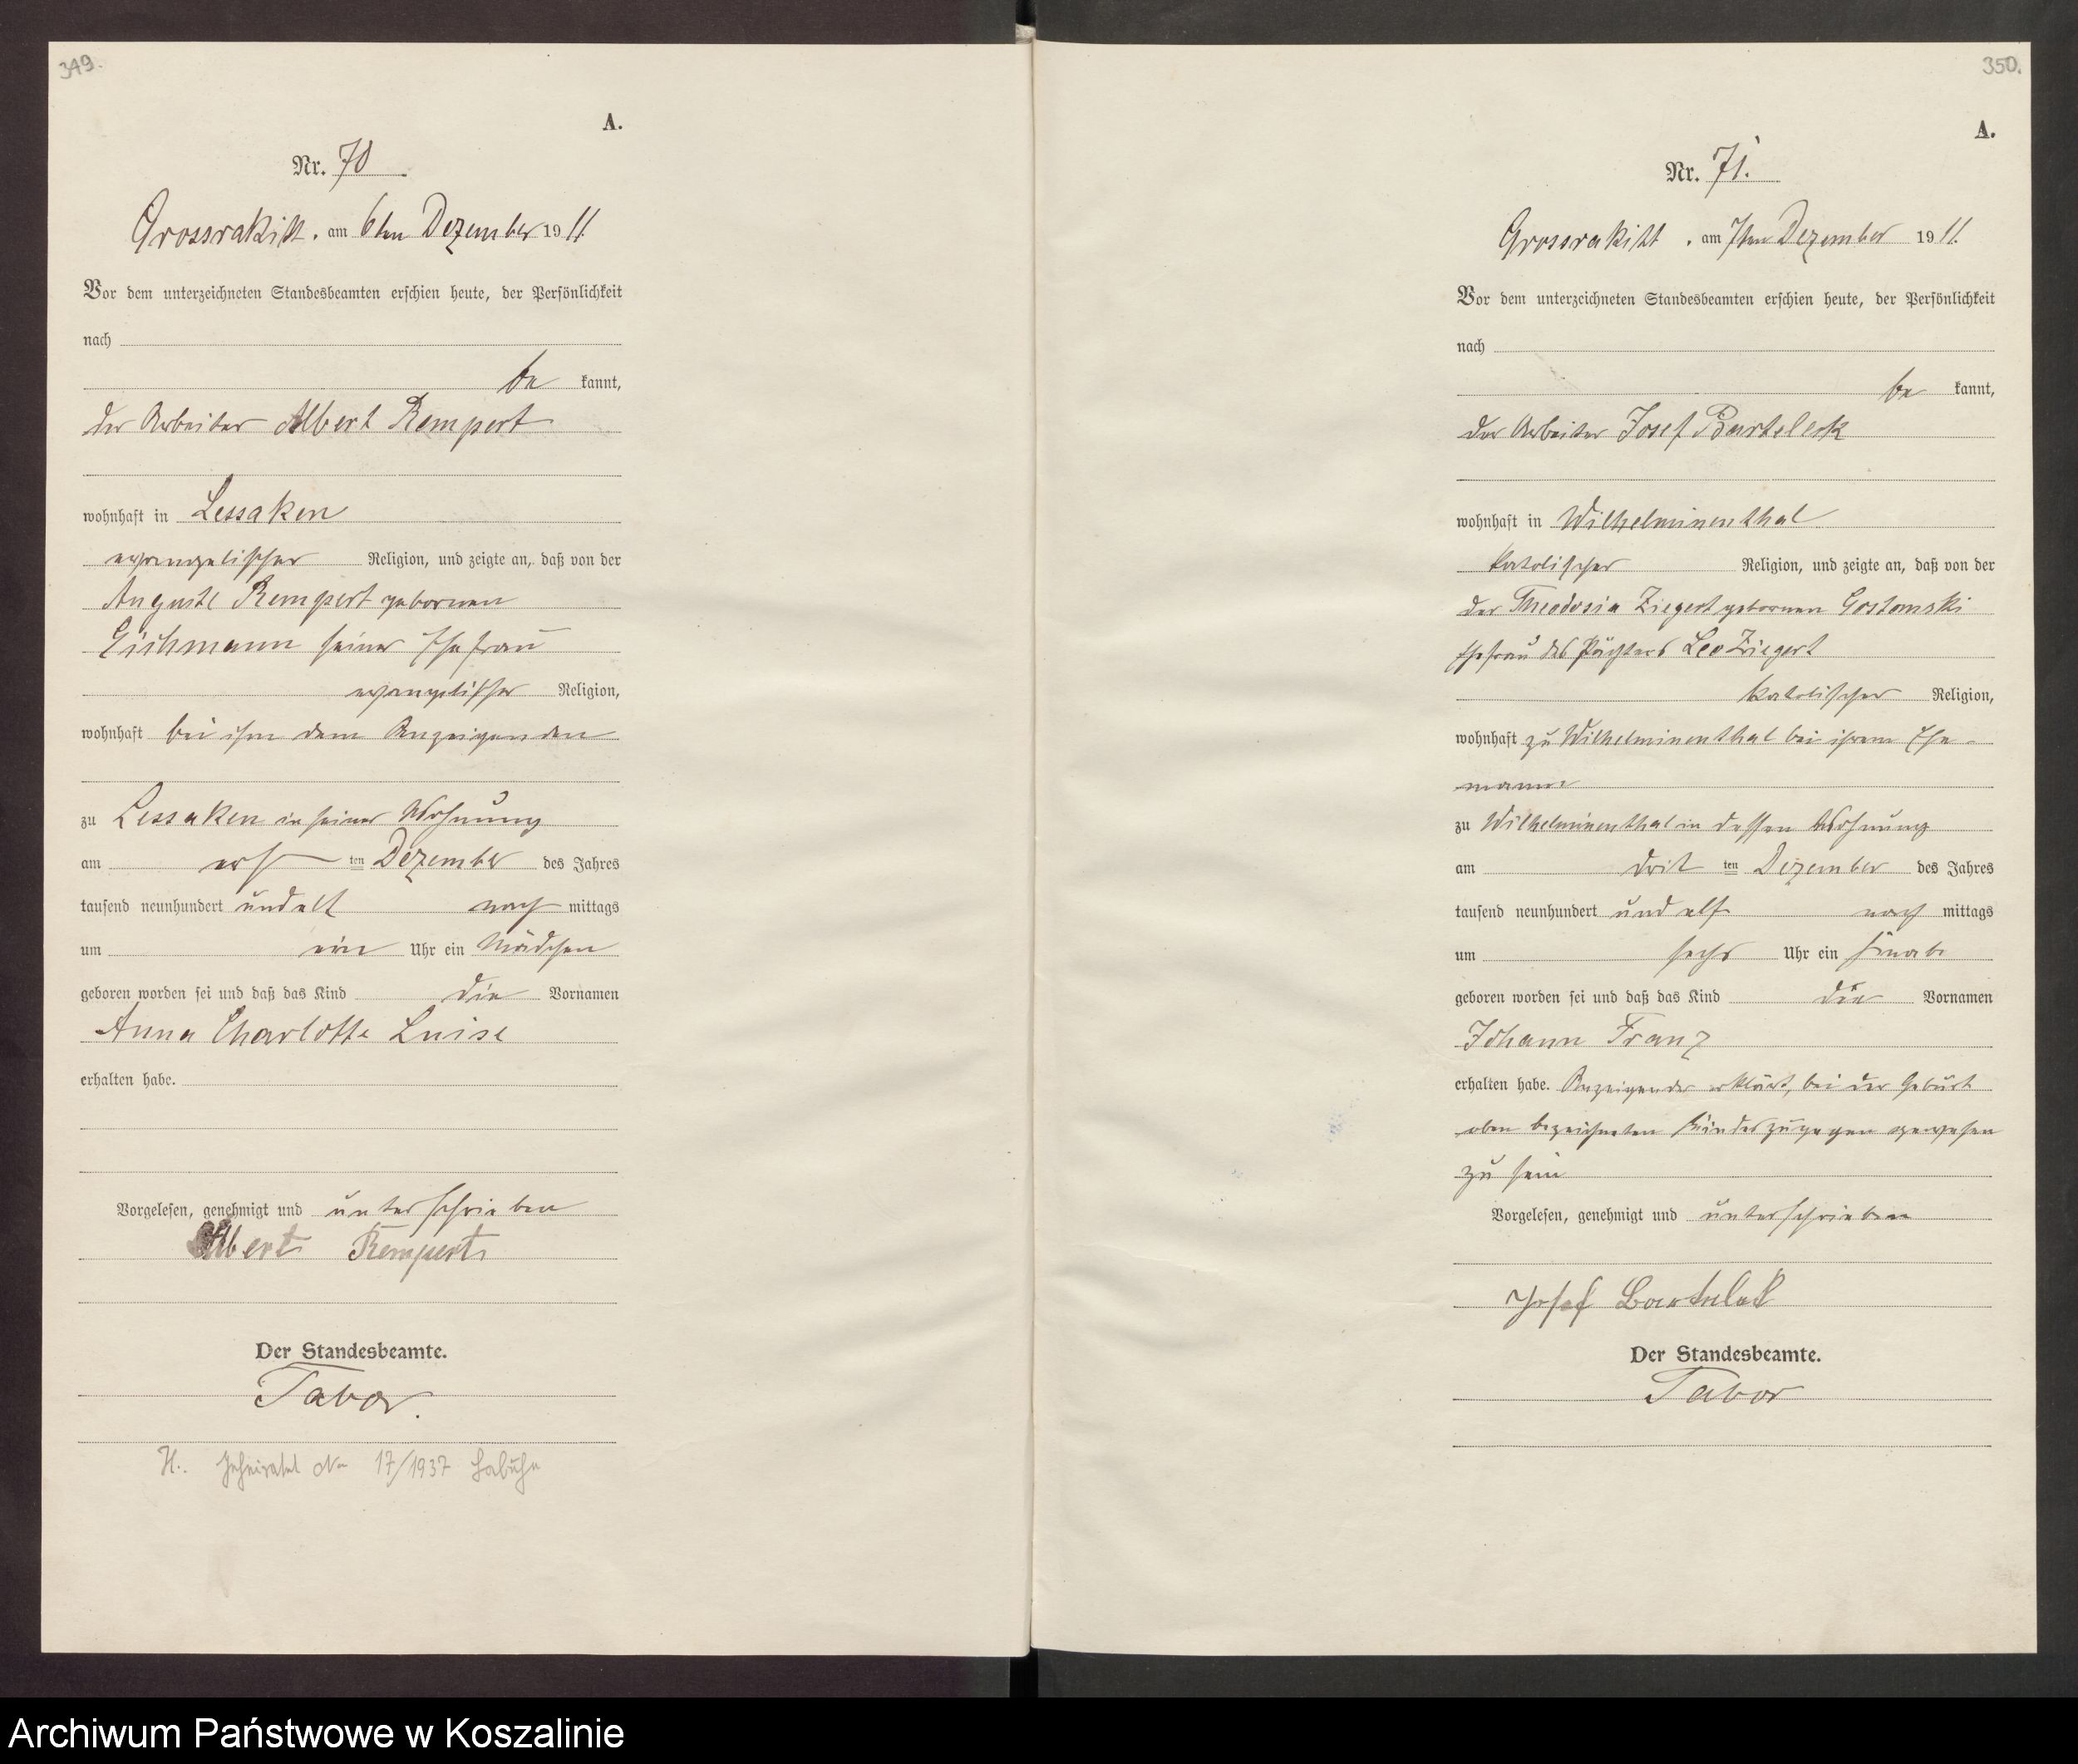 349.
A.
Nr. 70
Grossrakitt, am 6ten Dezember 1911.
Vor dem unterzeichneten Standesbeamten erschien heute, der Persönlichkeit
nach
be kannt,
der Arbeiter Albert Rempert
wohnhaft in Lessaken
evangelischer Religion, und zeigte an, daß von der
Auguste Rempert gebornen
Eichmann seiner Ehefrau
evangelischer Religion,
wohnhaft bei ihm dem Anzeigenden
zu Lessaken in seiner Wohnung
am ersten Dezember des Jahres
tausend neunhundert und elf nach mittags
um ein Uhr ein Mädchen
geboren worden sei und daß das Kind die Vornamen
Anna Charlotte Luise
erhalten habe.
Vorgelesen, genehmigt und unterschrieben
Albert Rempert
Der Standesbeamte.
Tabor.
H. Geheiratet Nr 17/1937 Labuhn
350.
A.
Nr. 71.
Grossrakitt, am 7ten Dezember 1911.
Vor dem unterzeichneten Standesbeamten erschien heute, der Persönlichkeit
nach
be kannt,
der Arbeiter Josef Barteleck
wohnhaft in Wilhelminenthal
katolischer Religion, und zeigte an, daß von der
der Theodosia Ziegert gebornen Gostomski
Ehefrau des Pächters Leo Ziegert
katolischer Religion,
wohnhaft zu Wilhelminenthal bei ihrem Ehe-
manne
zu Wilhelminenthal in dessen Wohnung
am dritten Dezember des Jahres
tausend neunhundert und elf nach mittags
um sechs Uhr ein Knabe
geboren worden sei und daß das Kind die Vornamen
Johann Franz
erhalten habe. Anzeigender erklärt, bei der Geburt
oben bezeichneten Kindes zugegen gewesen
zu sein
Vorgelesen, genehmigt und unterschrieben
Josef Bartelek
Der Standesbeamte.
Tabor
Archiwum Państwowe w Koszalinie